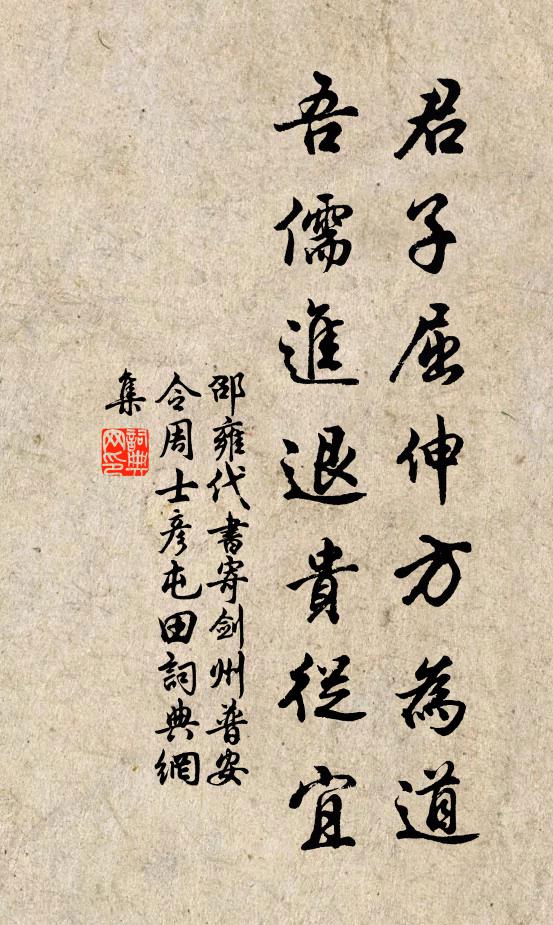 君子屈伸方為道
吾儒進退貴從宜
邵雍代書寄劍州普安
令周士彥屯田詞典網
集
詞典網印